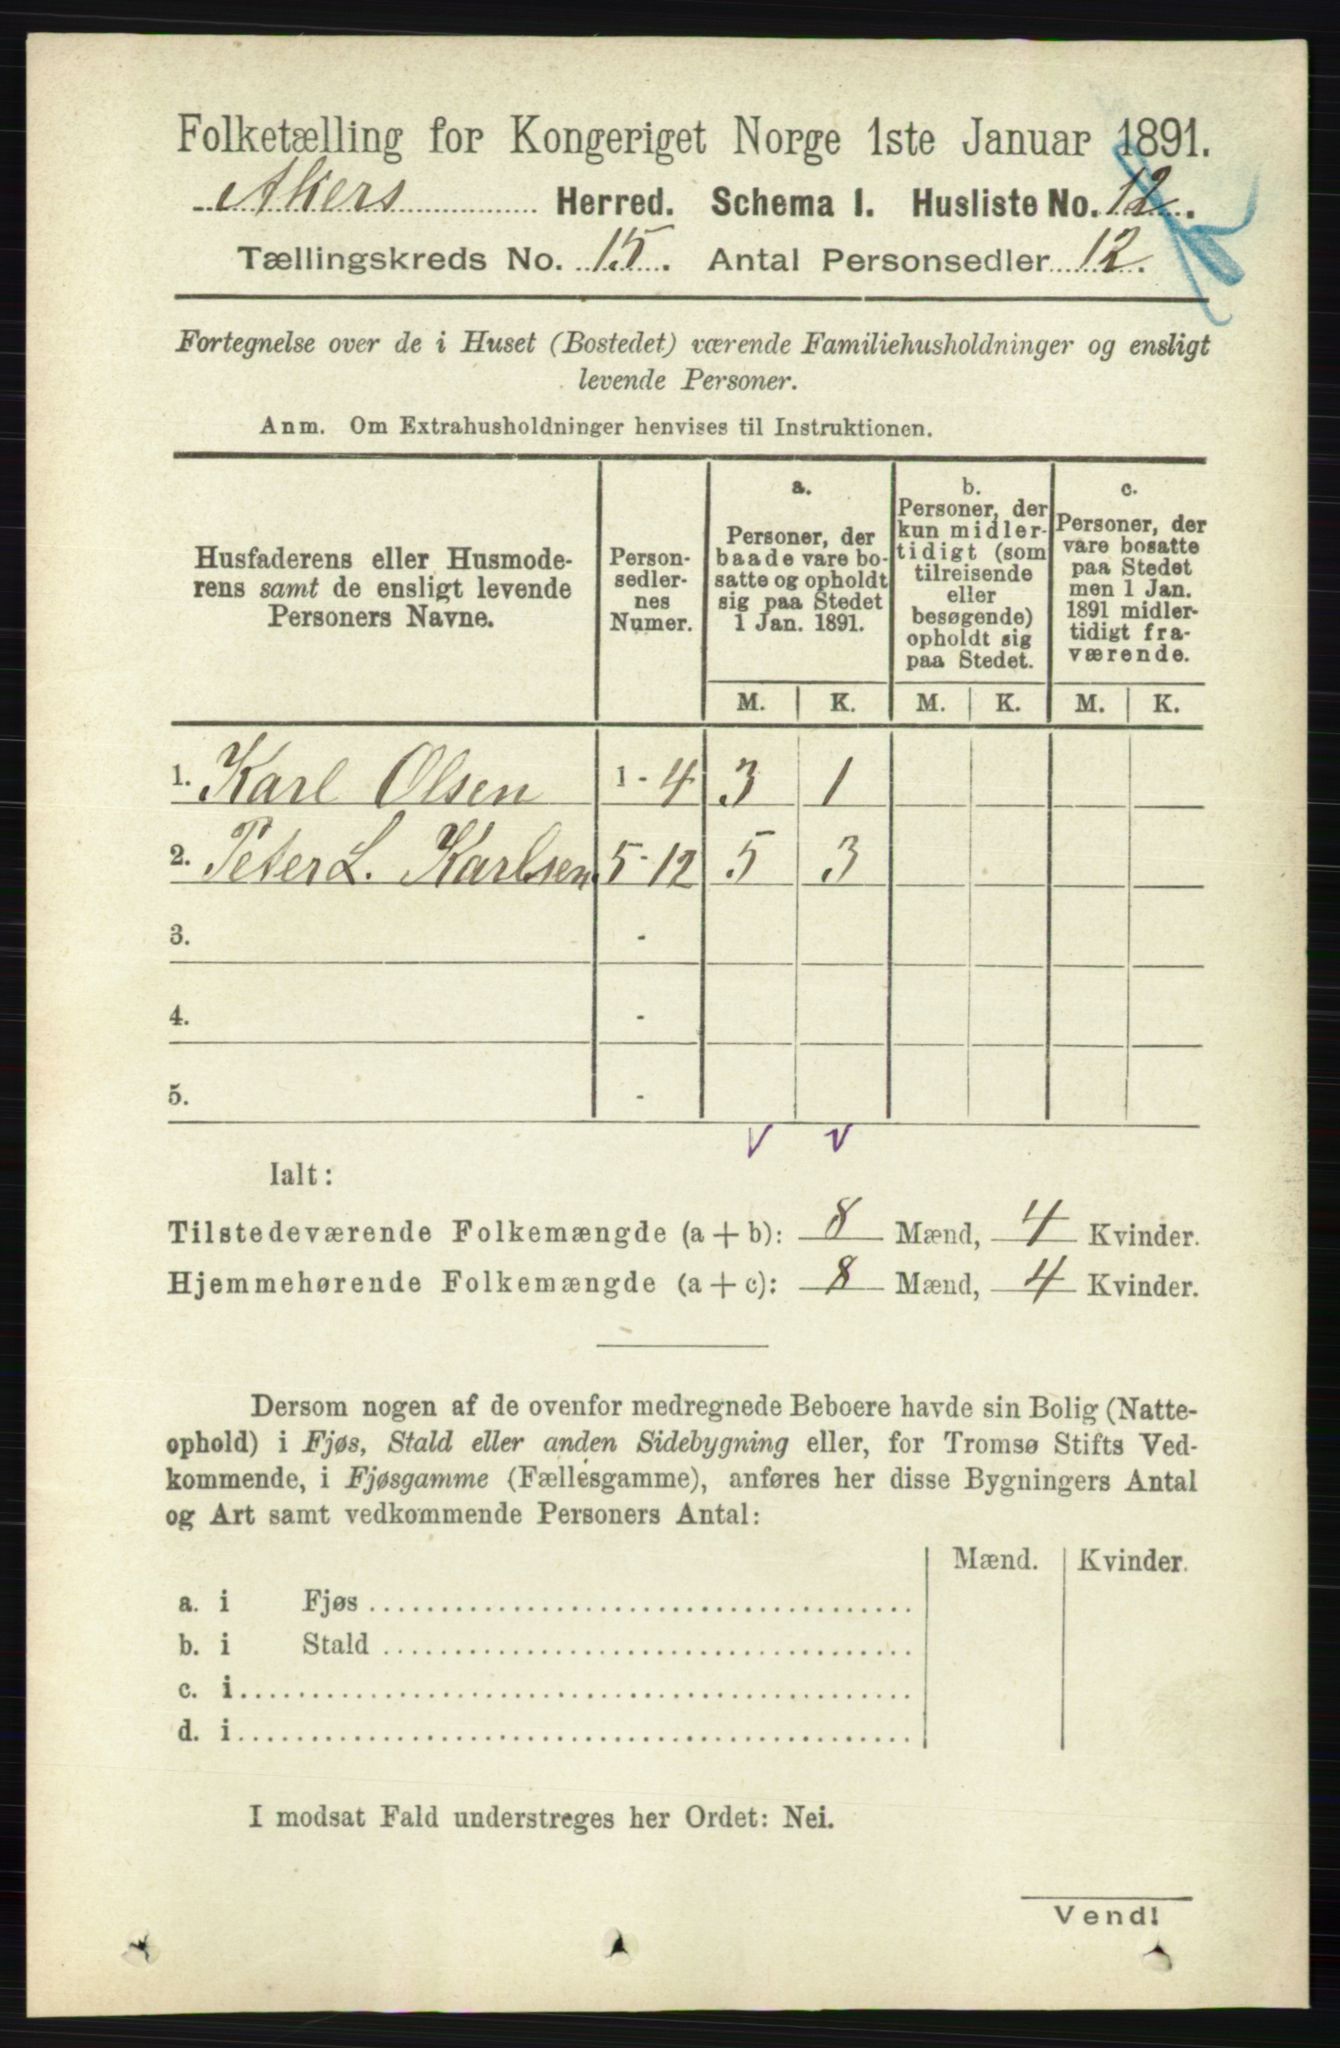 Folketælling for Kongeriget Norge 1ste Januar 1891.
Akers Herred. Schema I. Husliste No. 12.
Tællingskreds No. 15. Antal Personsedler 12.
Fortegnelse over de i Huset (Bostedet) værende Familiehusholdninger og ensligt
levende Personer.
Anm. Om Extrahusholdninger henvises til Instruktionen.
Husfaderens eller Husmode-
rens samt de ensligt levende
Personers Navne.
Person-
sedler-
nes
Numer.
a.
Personer, der
baade vare bo-
satte og opholdt
sig paa Stedet
1 Jan. 1891.
b.
Personer, der
kun midler-
tidigt (som
tilreisende
eller
besøgende)
opholdt sig
paa Stedet.
c.
Personer, der
vare bosatte
paa Stedet
men 1 Jan.
1891 midler-
tidigt fra-
værende.
M. K. M. K. M. K.
1. Karl Olsen 1 - 4 3 1
2. Peter L. Karlsen 5 - 12 5 3
3. -
4. -
5. -
V V
Ialt:
Tilstedeværende Folkemængde (a + b): 8 Mænd, 4 Kvinder.
Hjemmehørende Folkemængde (a + c): 8 Mænd, 4 Kvinder.
Dersom nogen af de ovenfor medregnede Beboere havde sin Bolig (Natte-
ophold) i Fjøs, Stald eller anden Sidebygning eller, for Tromsø Stifts Ved-
kommende, i Fjøsgamme (Fællesgamme), anføres her disse Bygningers Antal
og Art samt vedkommende Personers Antal:
Mænd. Kvinder.
a. i Fjøs
b. i Stald
c. i
d. i
I modsat Fald understreges her Ordet: Nei.
Vend!